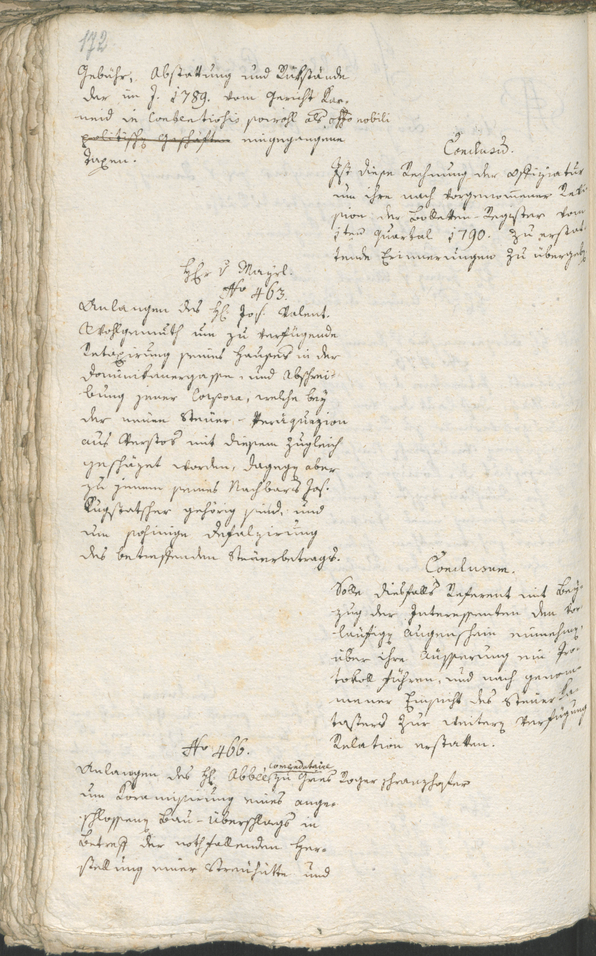 172
Gebühr, Abstattung und Rükstände
der im J. 1789. vom Gericht Kar-
neid in Contentiosis sowohl als offo nobili
politischen Geschäften eingegangene
Taxen.
Conclusum.
Ist diese Rechnung der Offiziatur
um ihre nach vorgenommener Revi-
sion der Bolleten-Register vom
1ten Quartal 1790. zu erstat-
tende Erinnerungen zu übergeben
H. v Mayrl.
No 463.
Anlangen des H. Jos. Valent.
Wohlgemuth um zu verfügende
Retaxirung seines Hauses in der
Dominikanergasse, und Abschrei-
bung jener Corpora, welche bey
der neuen Steuer-Peräquazion
aus Verstos mit diesem zugleich
geschäzet worden, dagegen aber
zu jenem seines Nachbars Jos.
Kugstatscher gehörig sind, und
um sohinige Defalzirung
des betreffenden Steuerbetrags.
Conclusum.
Solle diesfalls Referent mit Bey-
zug der Interessenten den vor-
läufigen Augenschein einnehmen,
über ihre Äusserung ein Pro-
tokoll führen, und nach genom-
mener Einsicht des Steuer-Ka-
tasters zur weitern Verfügung
Relation erstatten.
No 466.
Anlangen des H. Abbée comendataire zu Gries Roger Schranzhofer
um Koramisirung eines ange-
schlossenen Bau-Überschlags in
Betreff der nothfallenden Her-
stellung einer Streuhütte und